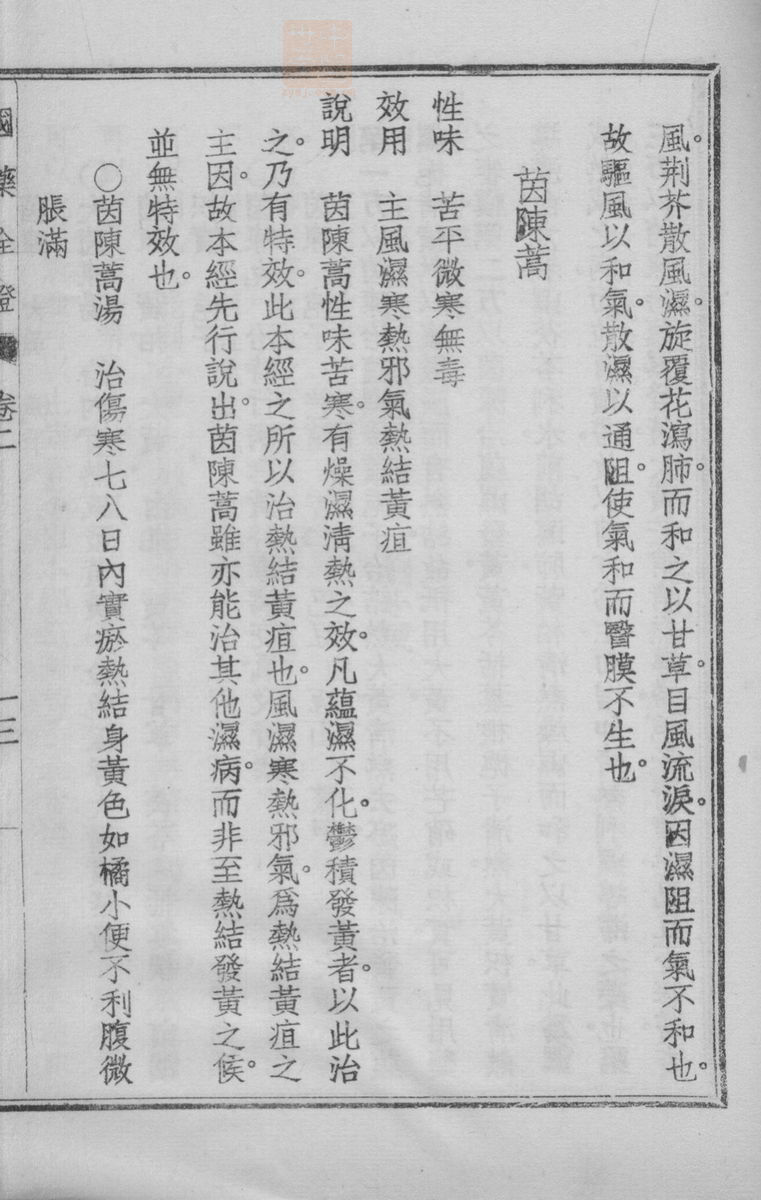 風荆芥散風濕。旋覆花瀉肺。而和之以甘草。目風流淚。因濕阻而氣不和也。
故驅風以和氣。散濕以通阻。使氣和而瞖膜不生也。
茵陳蒿
性味　苦平微寒無毒
效用　主風濕寒熱邪氣熱結黃疸
說明　茵陳蒿性味苦寒。有燥濕清熱之效。凡蘊濕不化。鬱積發黃者。以此治
之。乃有特效。此本經之所以治熱結黃疸也。風濕寒熱邪氣。爲熱結黃疸之
主因。故本經先行說出。茵陳蒿雖亦能治其他濕病。而非至熱結發黃之候。
並無特效也。
○茵陳蒿湯　治傷寒七八日內實瘀熱結身黃色如橘小便不利腹微
脹滿
國藥詮證　卷二　一三